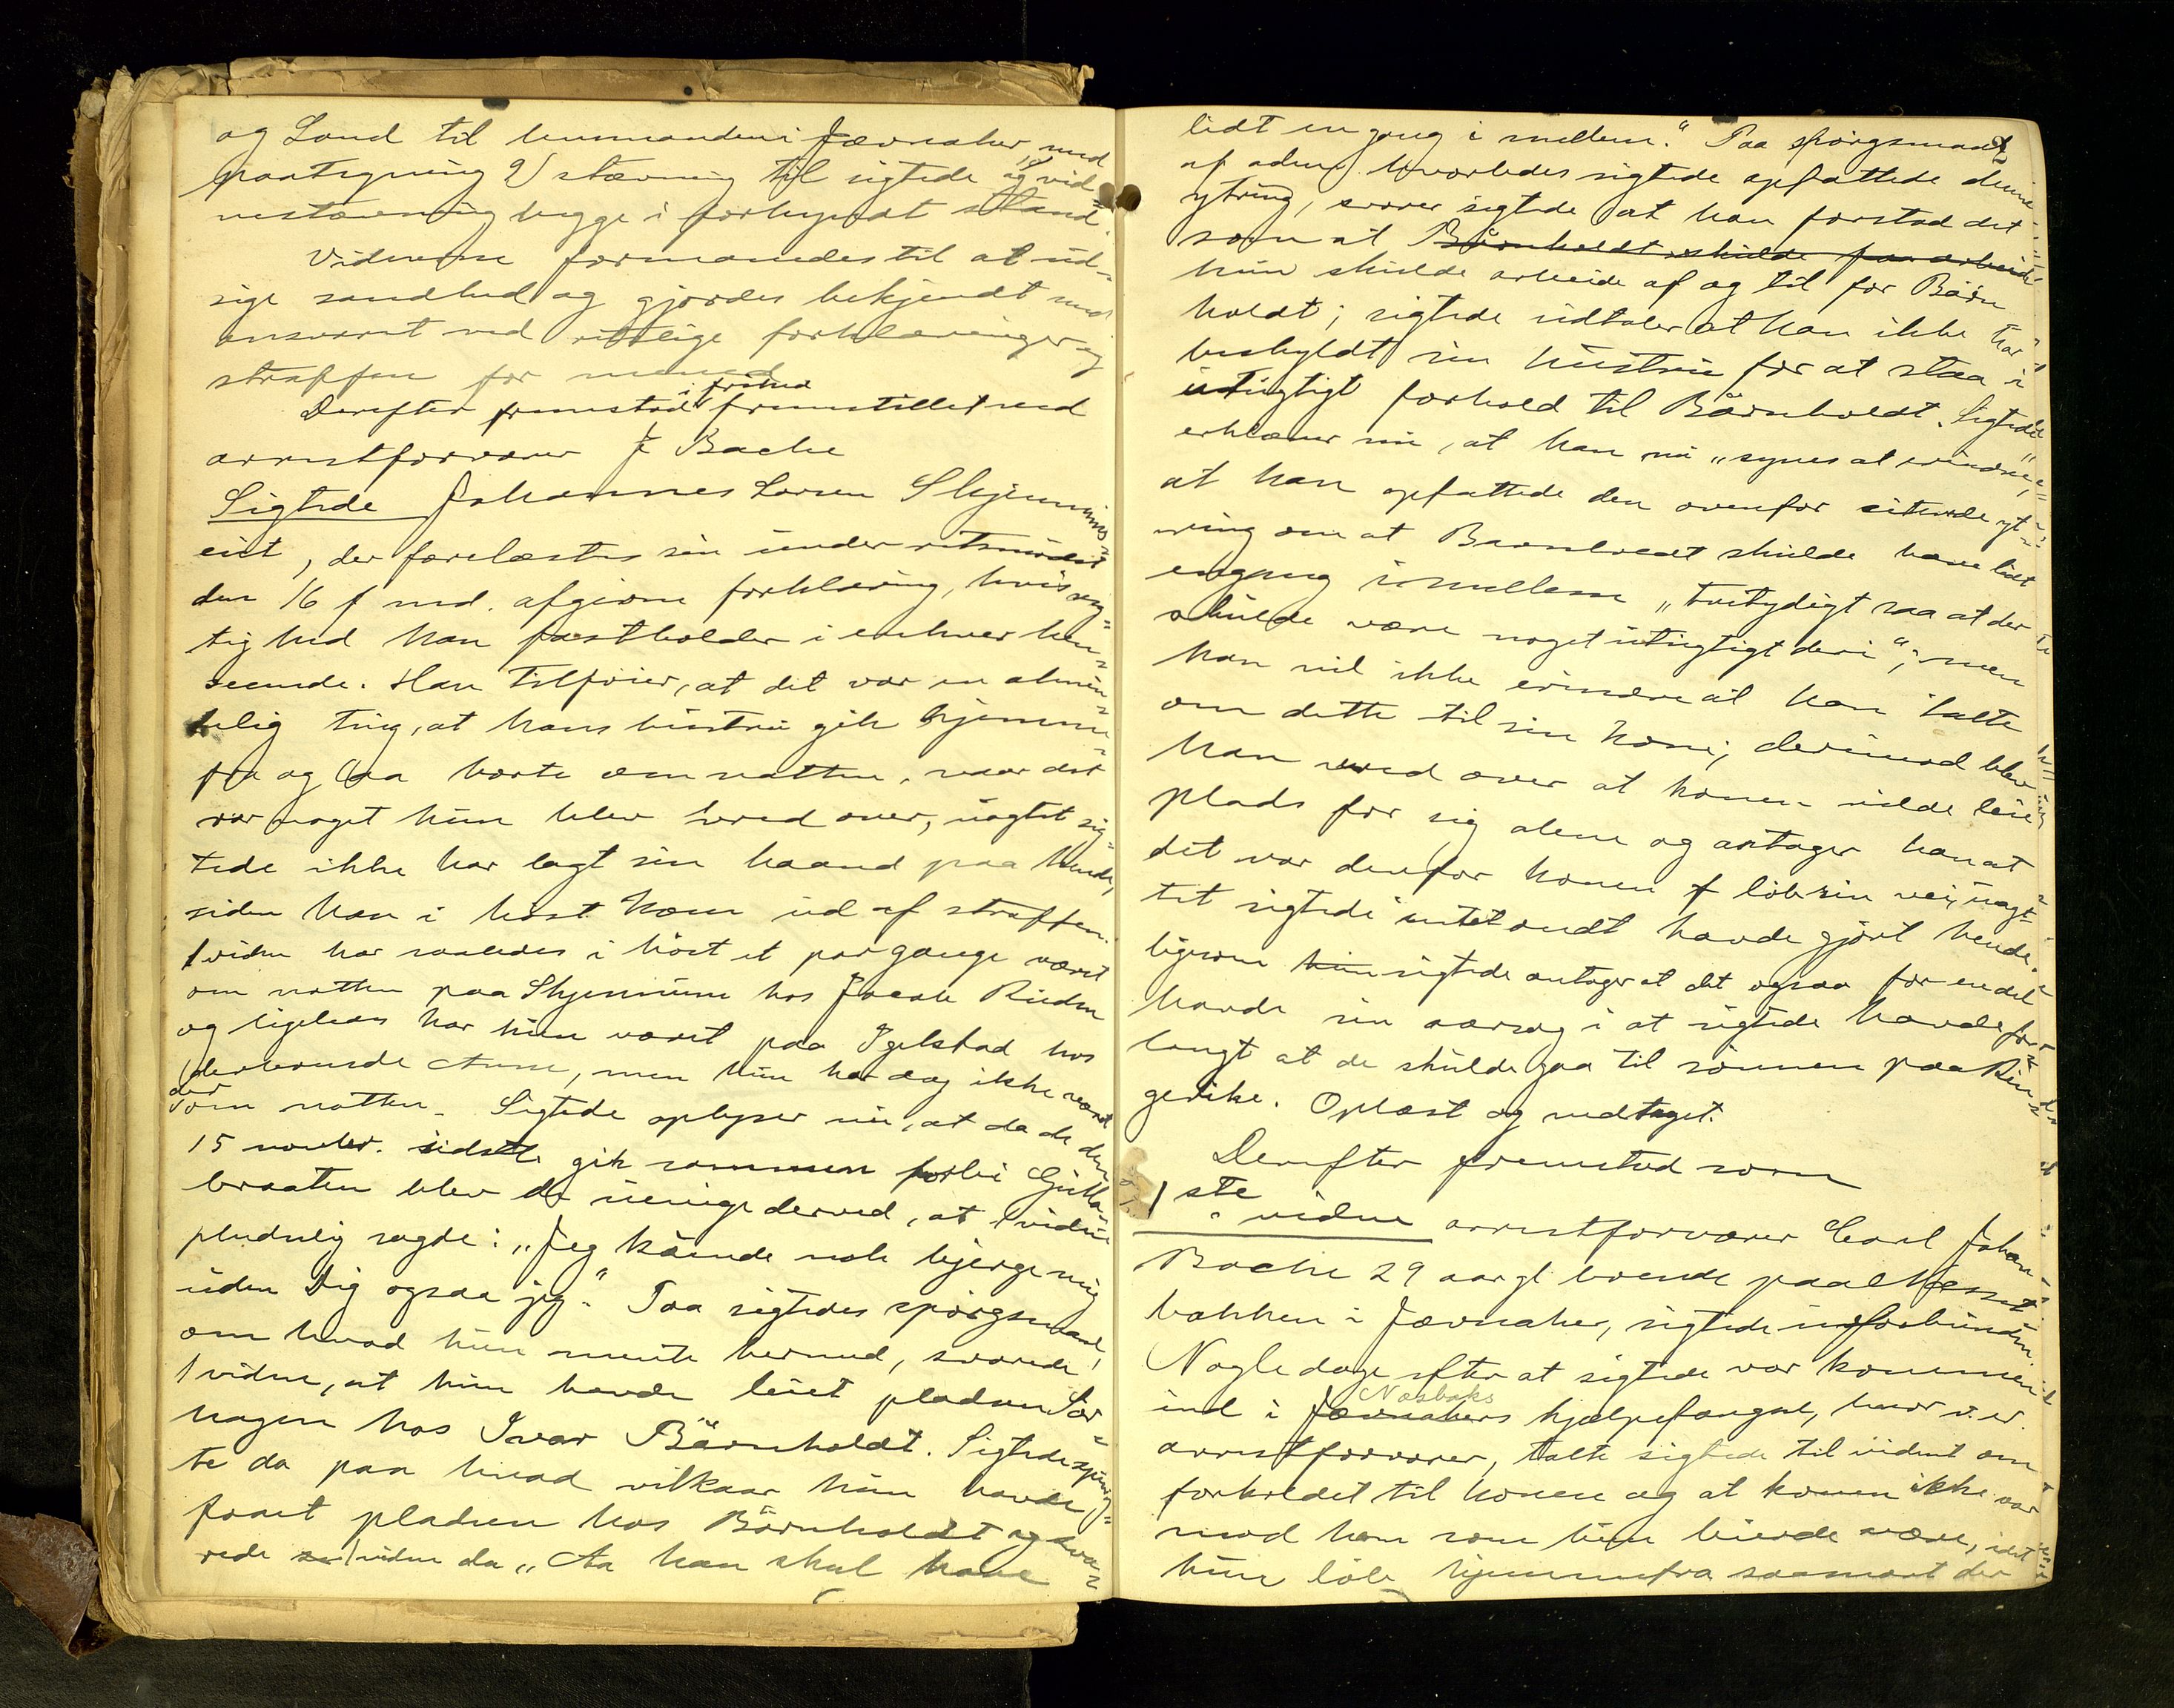 og Land til lensmanden i Jævnaker med
paategning 2) stævning til sigtede og vid
nestævning begge i forkyndt stand.
Vidnerne formanedes til at ud-
sige sandhed og gjordes bekjendt med
ansvaret ved urettige forklaringer og
straffen for mened
Derefter fremstod i frihed fremstillet ved
arrestforvarer J Bache
Sigtede Johannes Larsen Skjennum-
eiet, der forelæstes sin under retsmødet
den 16 f md. afgivne forklaring, hvis rig-
tighed han fastholder i enhver hen-
seende. Han tilføier, at det var en almin-
delig ting, at hans hustru gik hjemme-
fra og laa borte om natten, naar det
var noget hun blev vred over, uagtet sig-
tede ikke har lagt sin haand paa hende,
siden han i høst kom ud af straffen.
1 vidne har saaledes i høst et par gange været
om natten paa Skjennum hos Jacob
og ligeledes har hun været paa Igelstad hos
derboende Anne, men hun har dog ikke været
der om natten. Sigtede oplyser nu, at da de den
15 novber. sidstl. gik sammen forbi Gulla-
braaten blev de uenige derved, at 1 vidne
pludselig sagde: „Jeg kunde nok bjerge mig
uden Dig ogsaa jeg." Paa sigtedes spørgsmaal,
om hvad hun mente hermed, svarede
1 vidne, at hun havde leiet pladsen Sør-
hagen hos Ivar Bårnholdt. Sigtede spurg-
te da paa hvad vilkaar hun havde
faaet pladsen hos Bårnholdt og sva-
rede 1 vidne da „Aa han skal have
2
lidt en gang i mellem." Paa spørgsmaal
af adm. hvorledes sigtede opfattede denne
ytring, svarer sigtede at han forstod det
som at Bårnholdt skulde faa arbeide
hun skulde arbeide af og til for Bårn
holdt; sigtede udtaler at han ikke har
beskyldt sin hustru for at staa i
utugtigt forhold til Bårnholdt. Sigtede
erklærer nu, at han nu „synes at erindre",
at han opfattede den ovenfor citerede yt-
ring om at Barnholdt skulde have lidt
engang imellem „tvetydigt saa at der
skulde være noget utugtigt deri"; men
han vil ikke erindre at han talte
om dette til sin kone; derimod blev
han vred over at konen vilde leie
plads for sig alene og antager han at
det var derfor konen løb sin vei, uagt-
tet sigtede intet ondt havde gjort hende,
ligesom hun sigtede antager at det ogsaa for en del
havde sin aarsag i at sigtede havde for-
langt at de skulde gaa til sønnen paa Rin-
gerike. Oplæst og vedtaget.
Derefter fremstod som
1 ste vidne arrestforvarer Carl Johan
Bache 29 aar gl boende paa
bakken i Jævnaker, sigtede uforbunden.
Nogle dage efter at sigtede var kommen
ind i Jævnakers Næsbaks hjælpefængsel, hvor v. er
arrestforvarer, talte sigtede til vidnet om
forholdet til konen og at konen ikke var
mod ham som hun burde være, idet
hun løb hjemmefra saasnart der